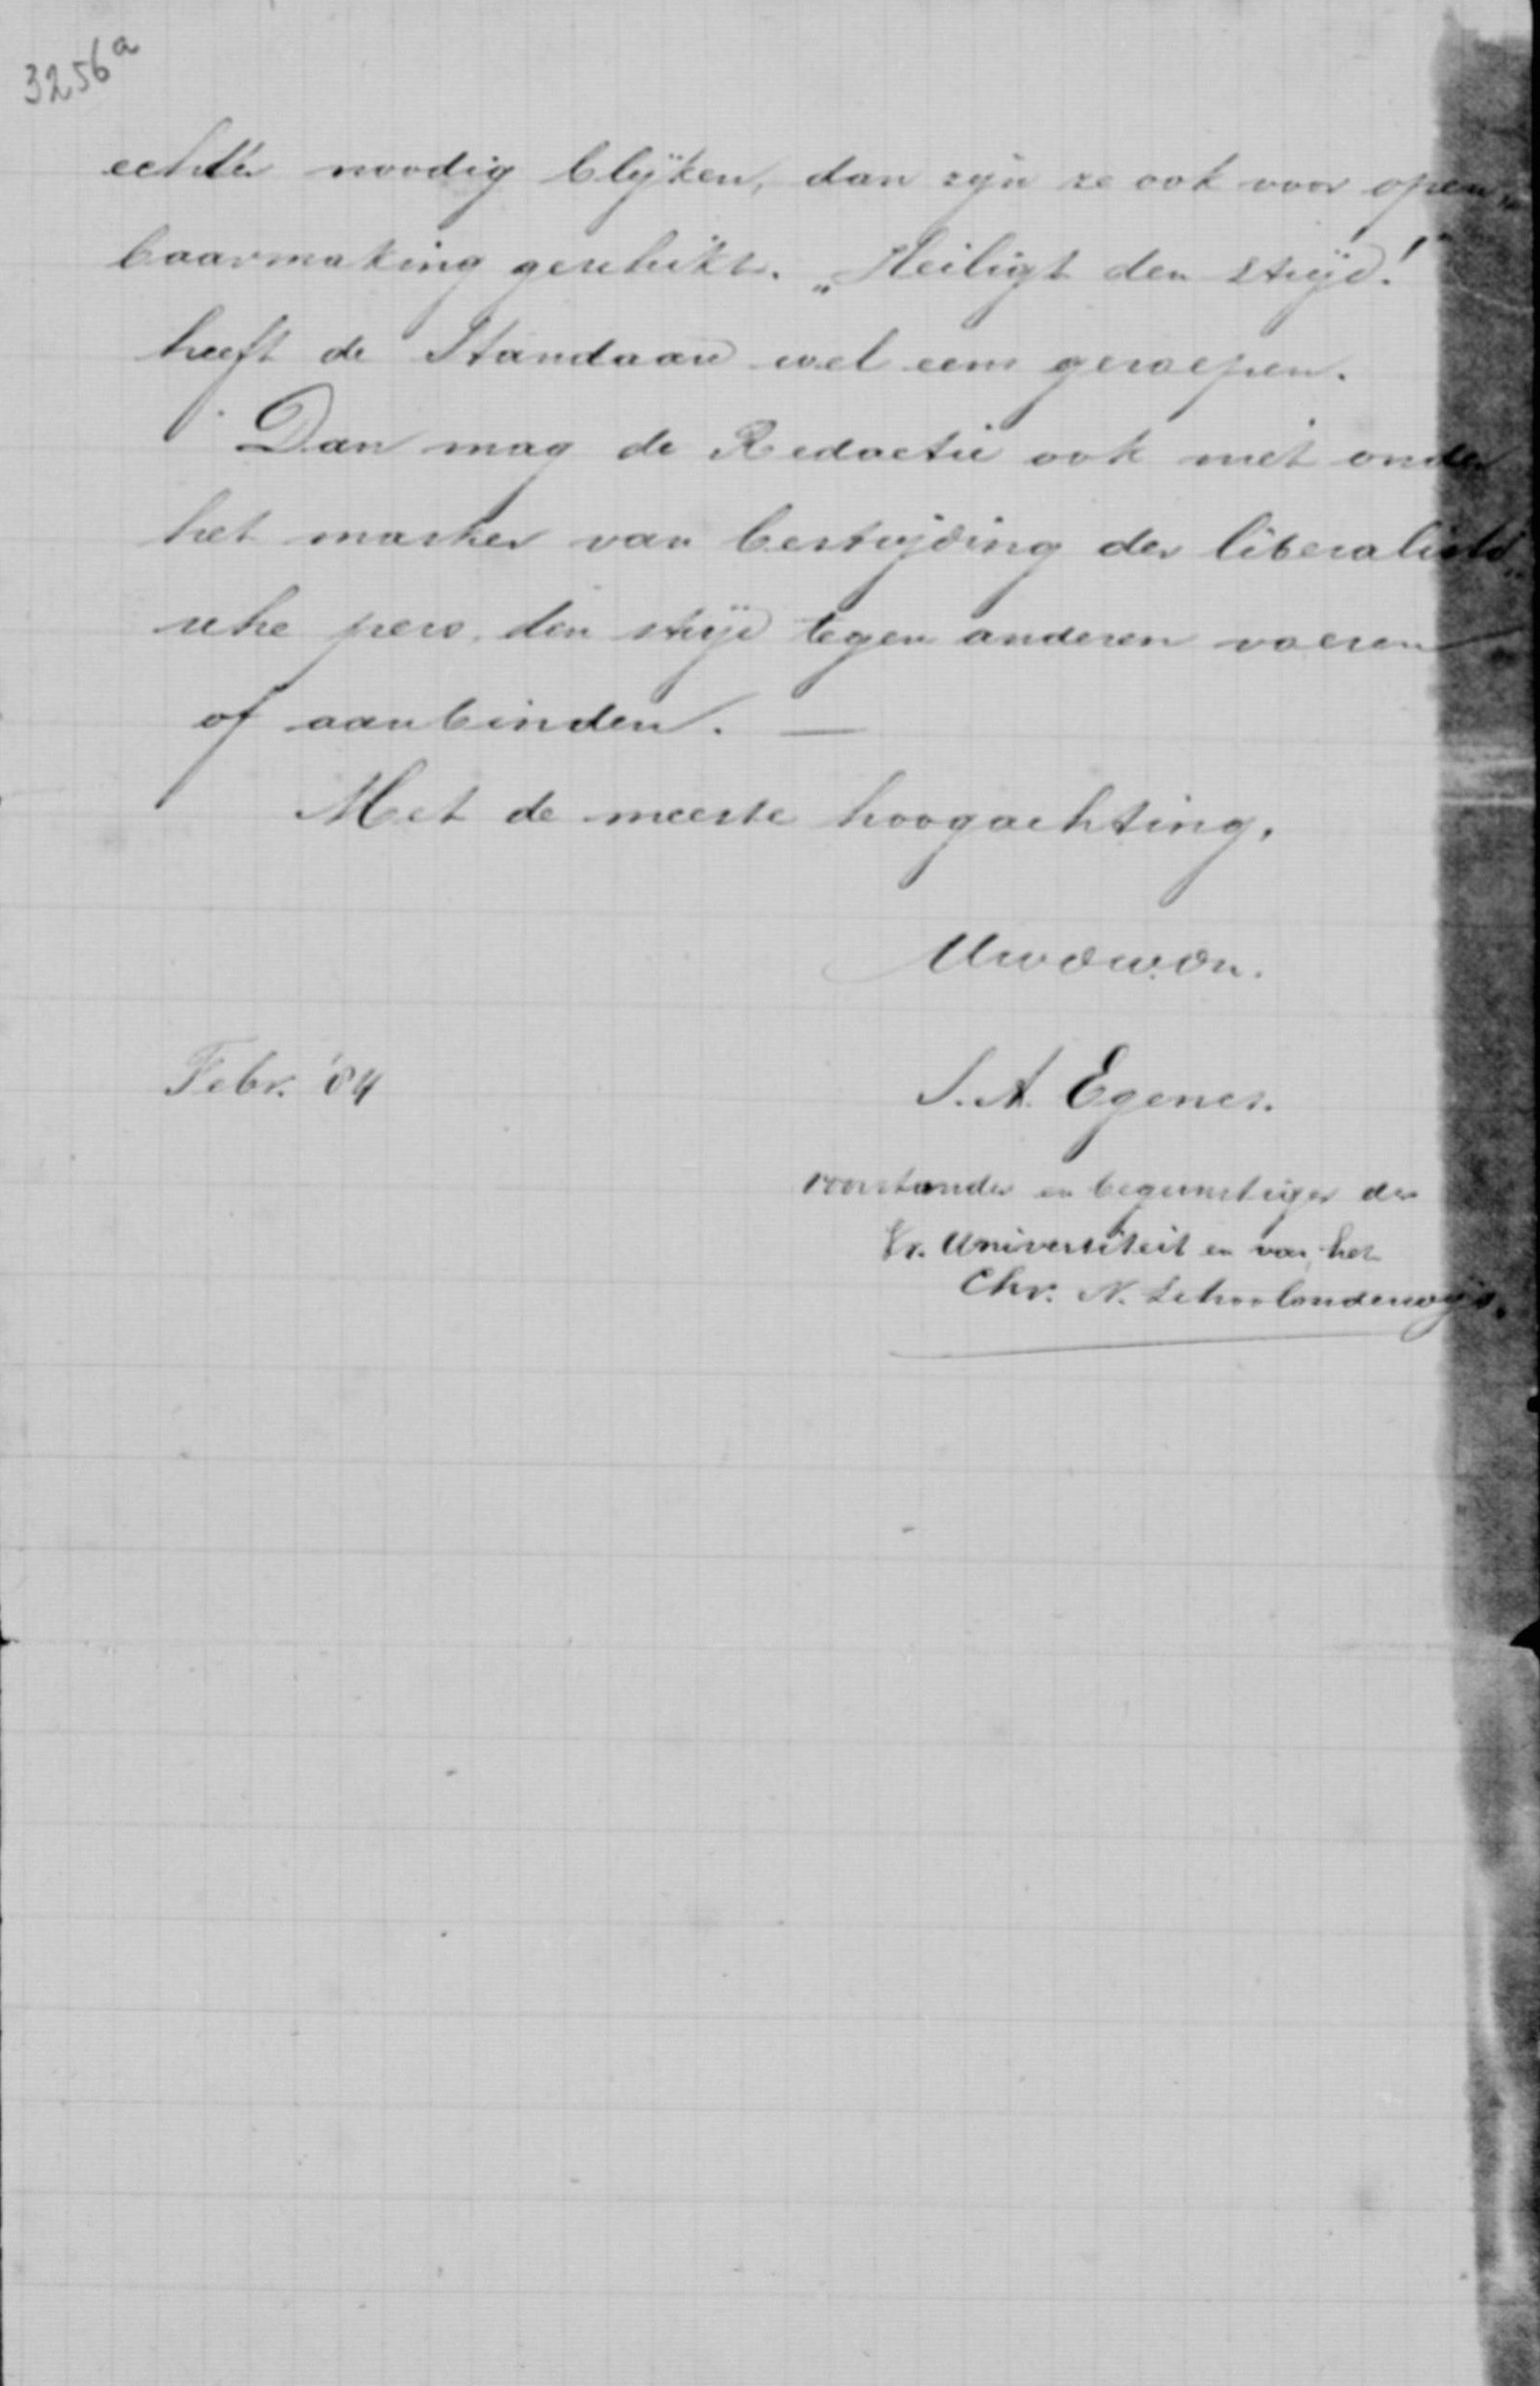 3256a
echter noodig blijken, dan zijn ze ook voor open„
baarmaking geschikt. „Heiligt den strijd!"
heeft de Standaard wel eens geroepen.
Dan mag de Redactie ook niet onder
het masker van bestrijding der liberalisti„
sche pers, den strijd tegen anderen voeren
of aanbinden. —
Met de meeste hoogachting,
Uwdwdn.
Febr. '84
S. A. Egener.
voorstander en begunstiger der
Vr. Universiteit en van het
Chr. N. Schoolonderwijs.